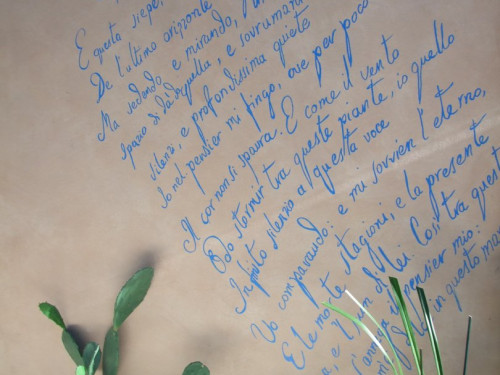 E questa siepe,
De l'ultimo orizzonte
Ma sedendo e mirando,
spazio di là da quella, e sovrumani
silenzi, e profondissima quiete
Io nel pensier mi fingo, ove per poco
Il cor non si spaura. E come il vento
Odo stormir tra queste piante, io quello
Infinito silenzio a questa voce
Vo comparando: e mi sovvien l'eterno,
E le morte stagioni, e la presente
e il suon di lei. Così tra questa
pensier mio:
in questo mare